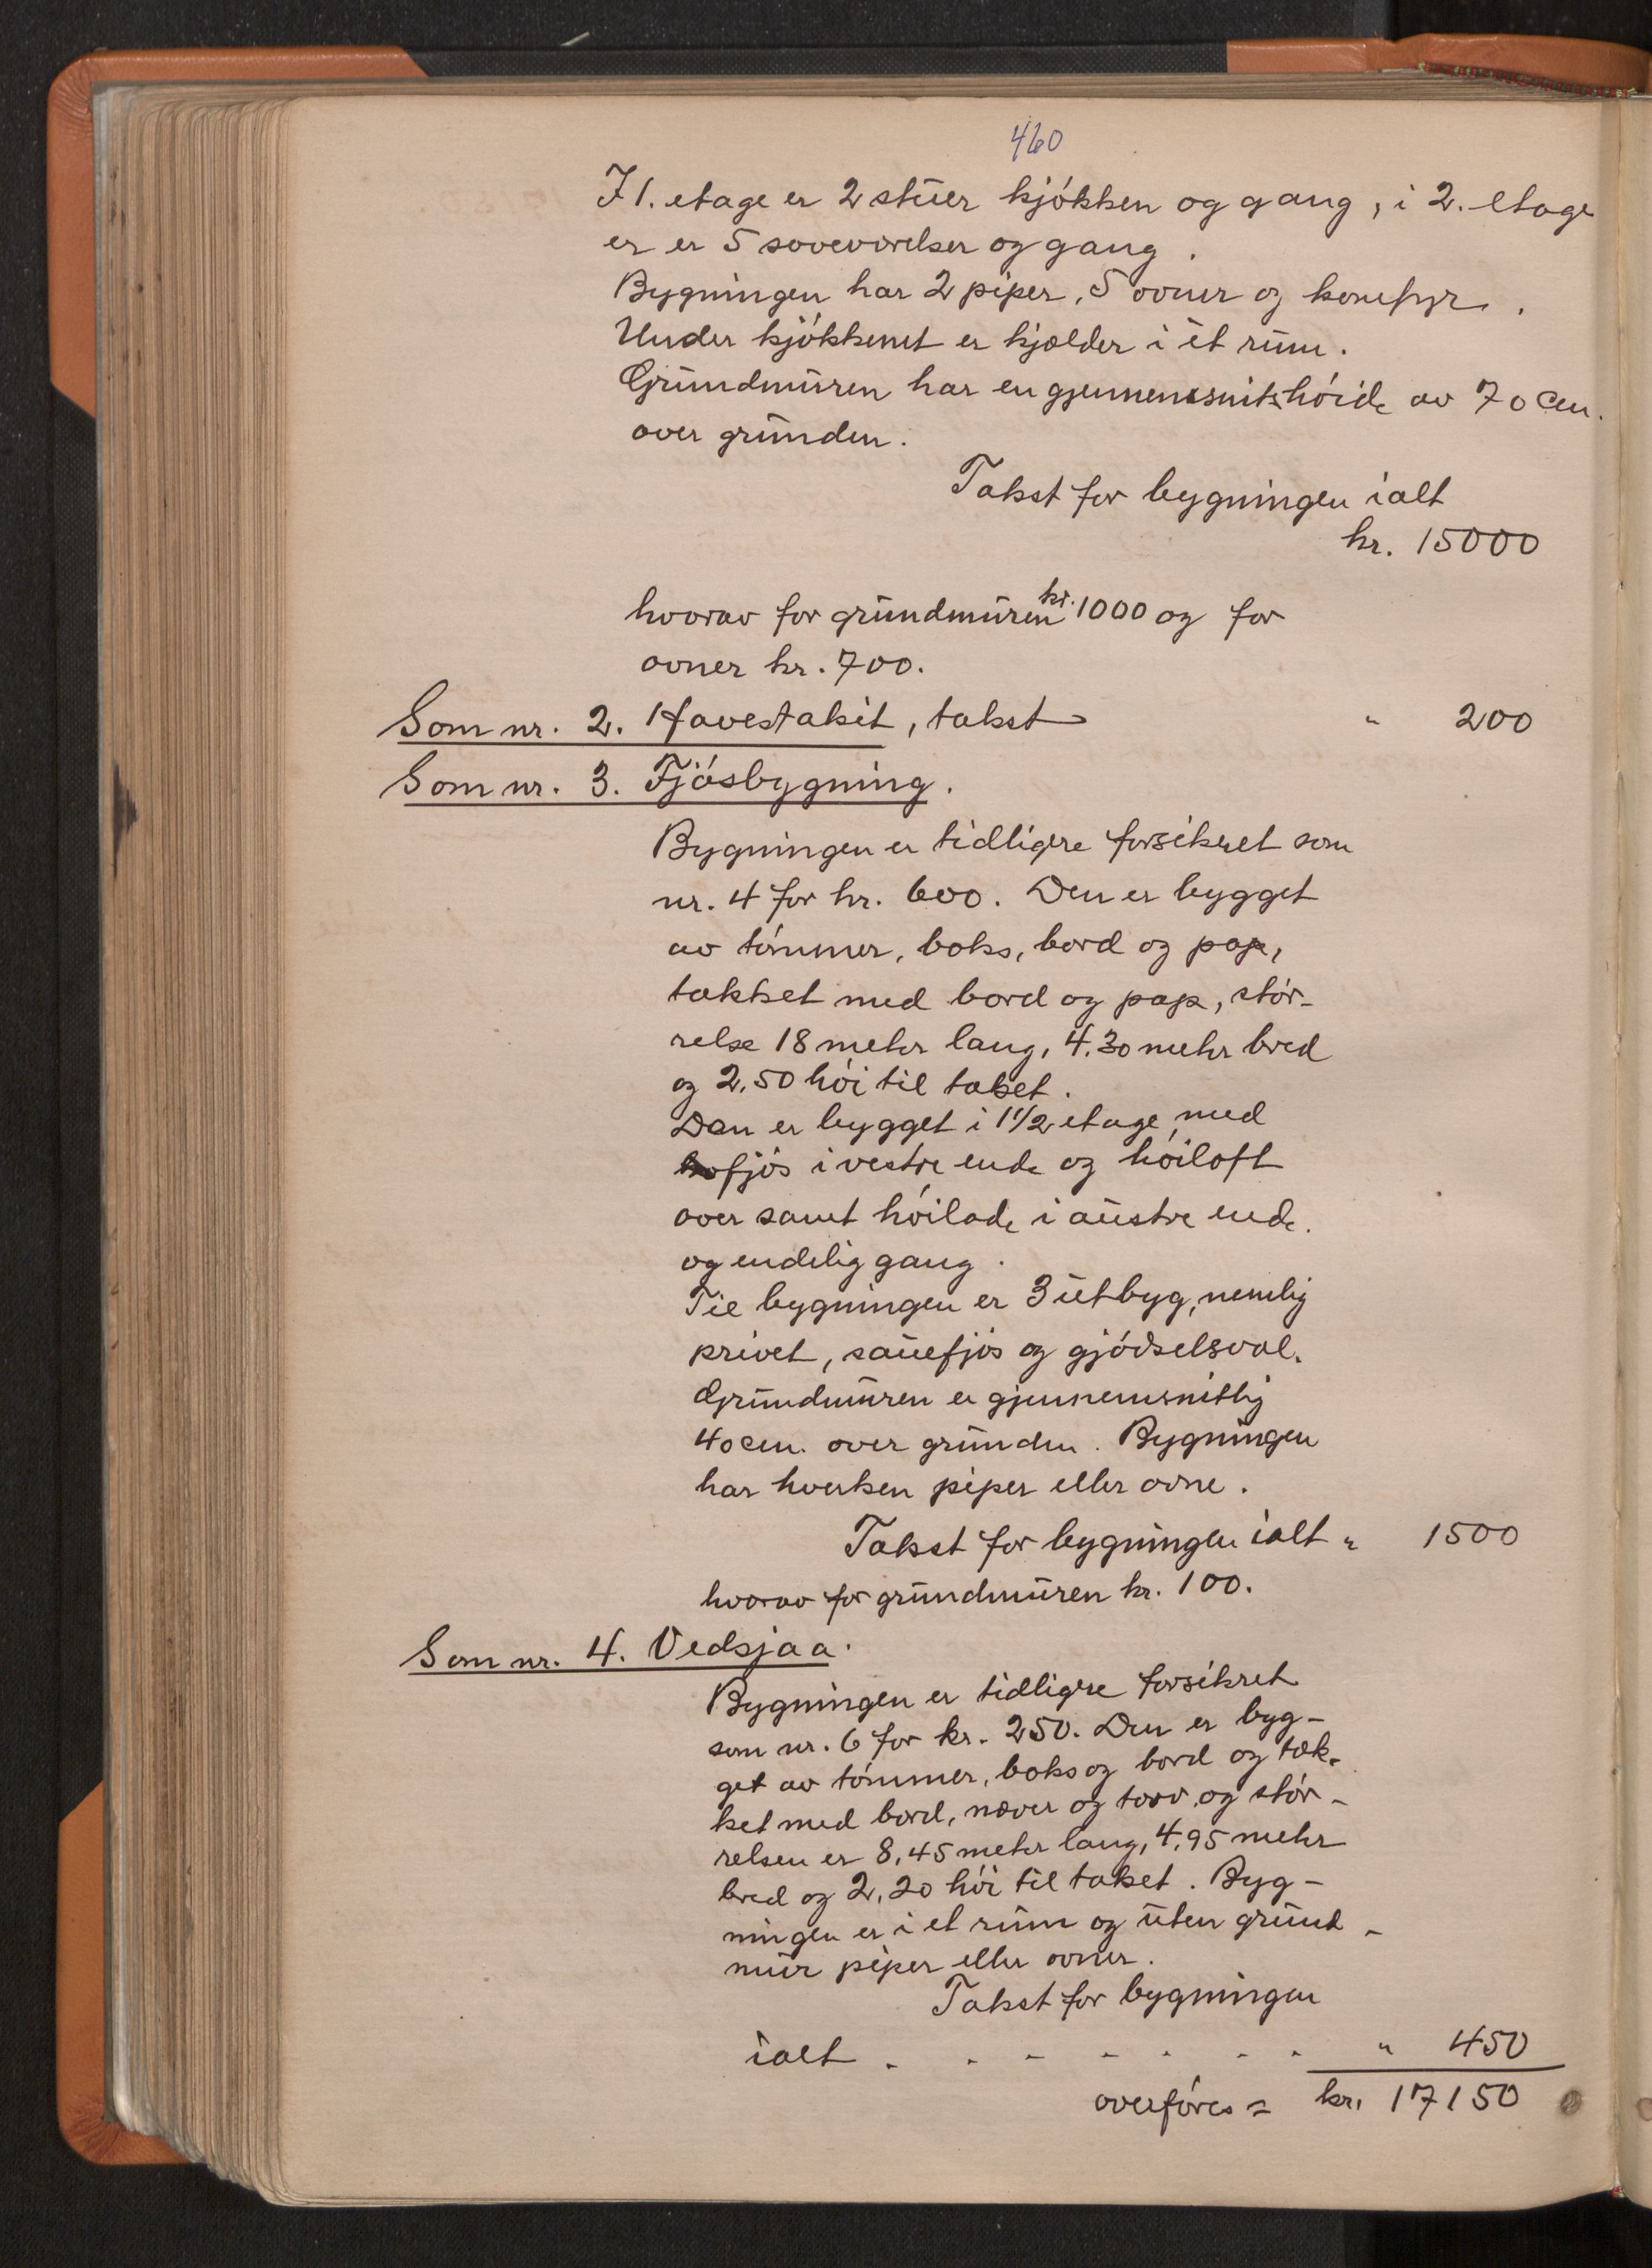 460
I 1. etage er 2 stuer kjøkken og gang, i 2. etage
er er 5 soveværelser og gang.
Bygningen har 2 piper, 5 ovner og komfyr.
Under kjøkkenet er kjælder i et rum.
Grundmuren har en gjennemsnitshøide av 70 cm.
over grunden.
Takst for bygningen ialt
kr. 15000
hvorav for grundmuren kr. 1000 og for
ovner kr. 700.
Som nr. 2. Havestakit, takst " 200
Som nr. 3. Fjøsbygning.
Bygningen er tidligere forsikret som
nr. 4 for kr. 600. Den er bygget
av tømmer, boks, bord og pap,
tækket med bord og pap, stør-
relse 18 meter lang, 4.30 meter bred
og 2,50 høi til taket.
Den er bygget i 1 1/2 etage, med
kofjøs i vestre ende og høiloft
over samt høilade i austre ende.
og endelig gang.
Til bygningen er 3 utbyg, nemlig
privet, sauefjøs og gjødselsval.
Grundmuren er gjennemsnitlig
40 cm. over grunden. Bygningen
har hverken piper eller ovne.
Takst for bygningen ialt " 1500
hvorav for grundmuren kr. 100.
Som nr. 4. Vedsjaa.
Bygningen er tidligere forsikret
som nr. 6 for kr. 250. Den er byg-
get av tømmer, boks og bord og tæk-
ket med bord, næver og torv, og stør-
relsen er 8,45 meter lang, 4,95 meter
bred og 2,20 høi til taket. Byg-
ningen er i et rum og uten grund-
mur piper eller ovner.
Takst for bygningen
ialt . . . . . . . " 450
overføres = kr. 17150